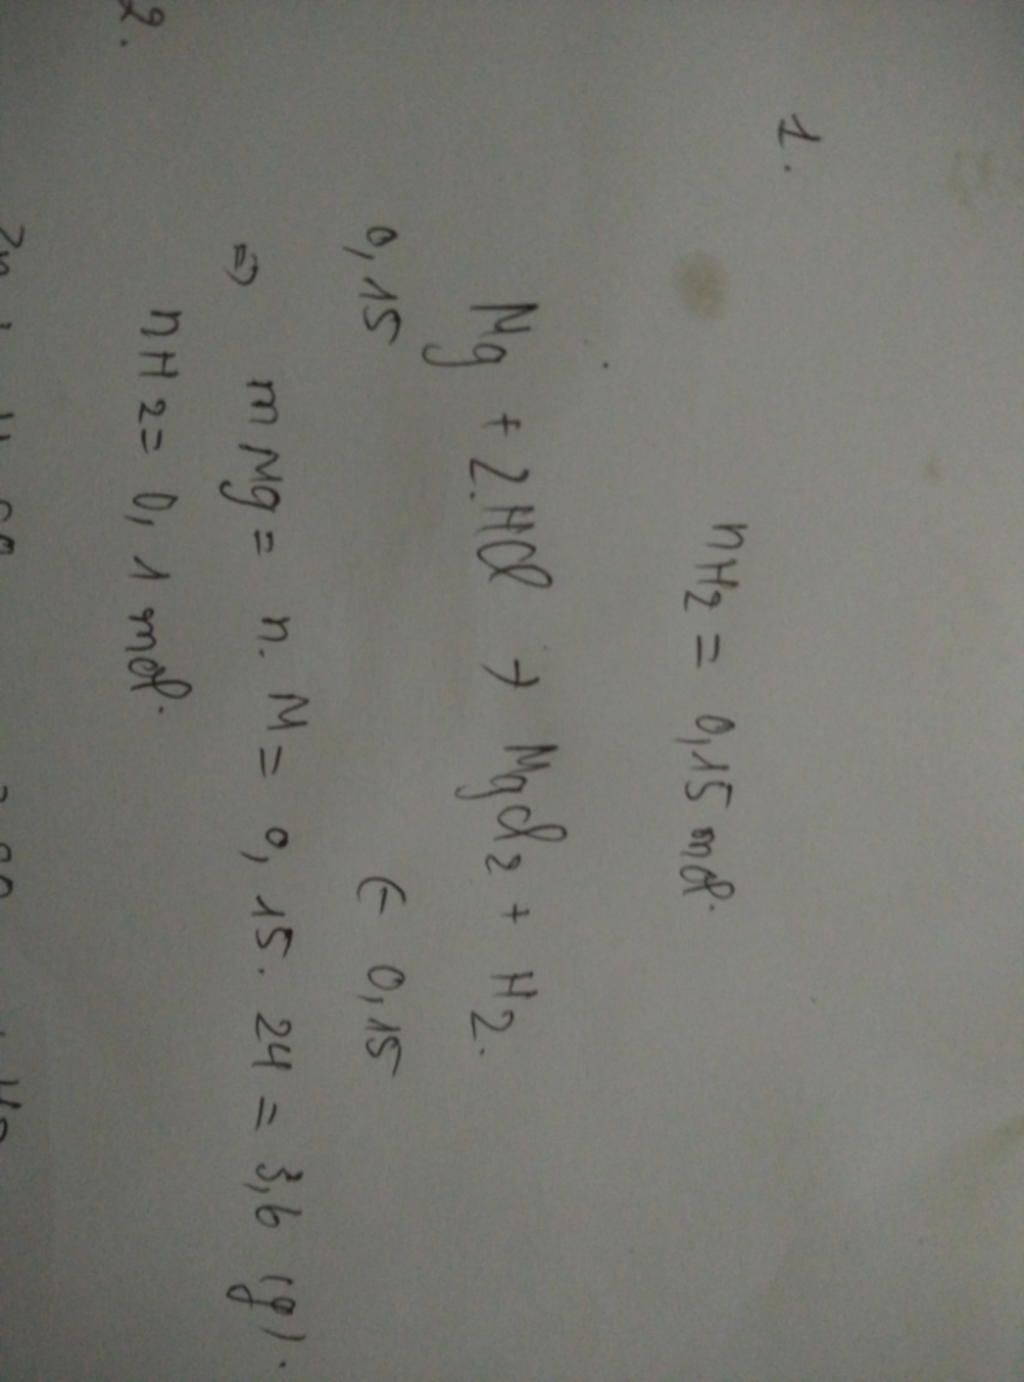 1.
nH2 = 0,15 mol.
Mg + 2.HCl → MgCl2 + H2.
0,15 ← 0,15
⇒ mMg = n. M = 0, 15. 24 = 3,6 (g).
2. nH2 = 0, 1 mol.